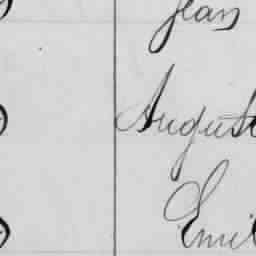 Jean
August
Emil